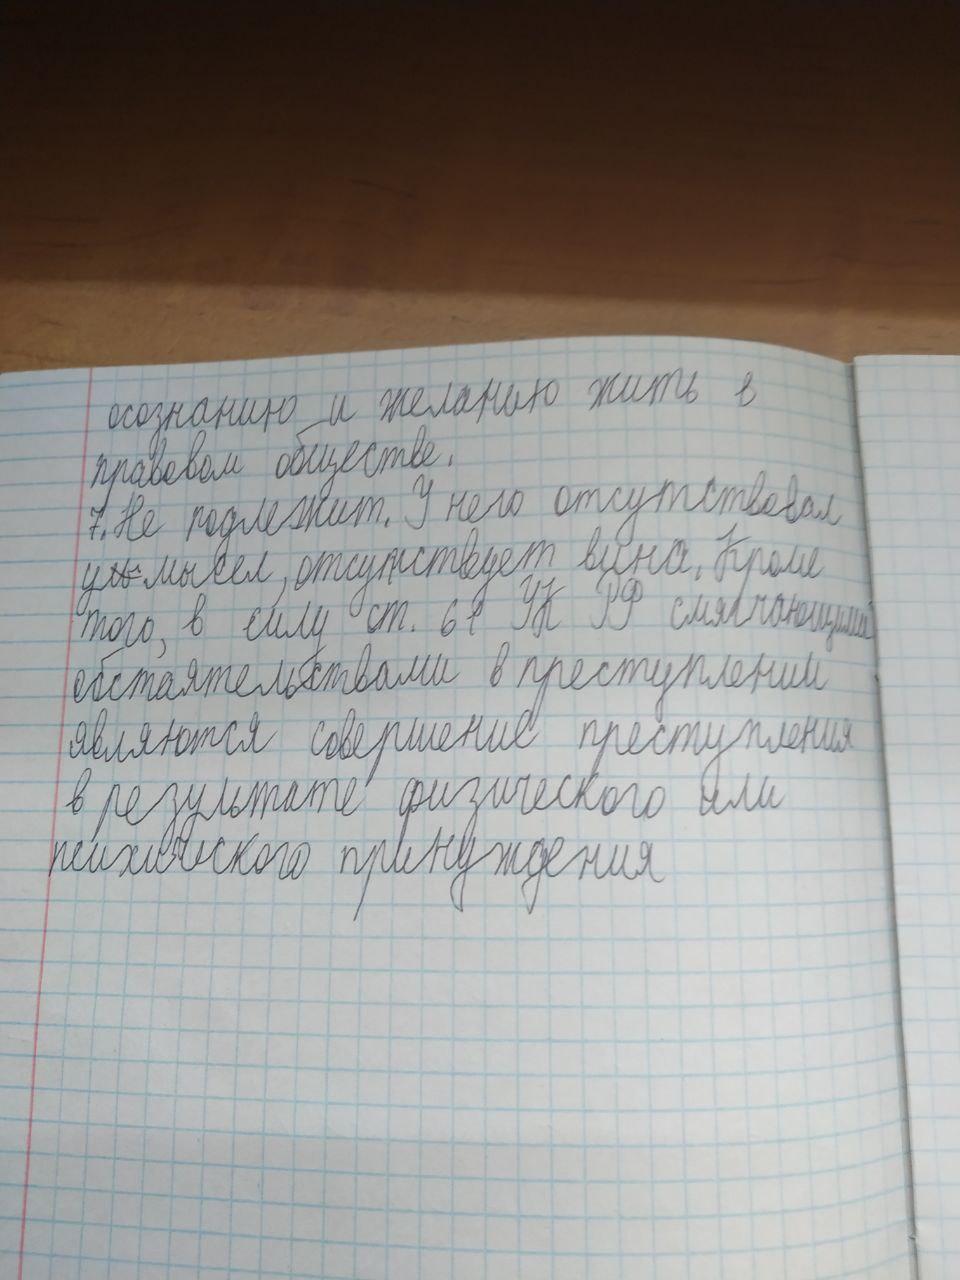 осознанию и желанию жить в
правовом обществе.
7. Не подлежит. У него отсутствовал
умысел, отсутствует вина. Кроме
того, в силу ст. 61 УК РФ смягчающими
обстаятельствами в преступлении
являются совершение преступления
в результате физического или
психического принуждения